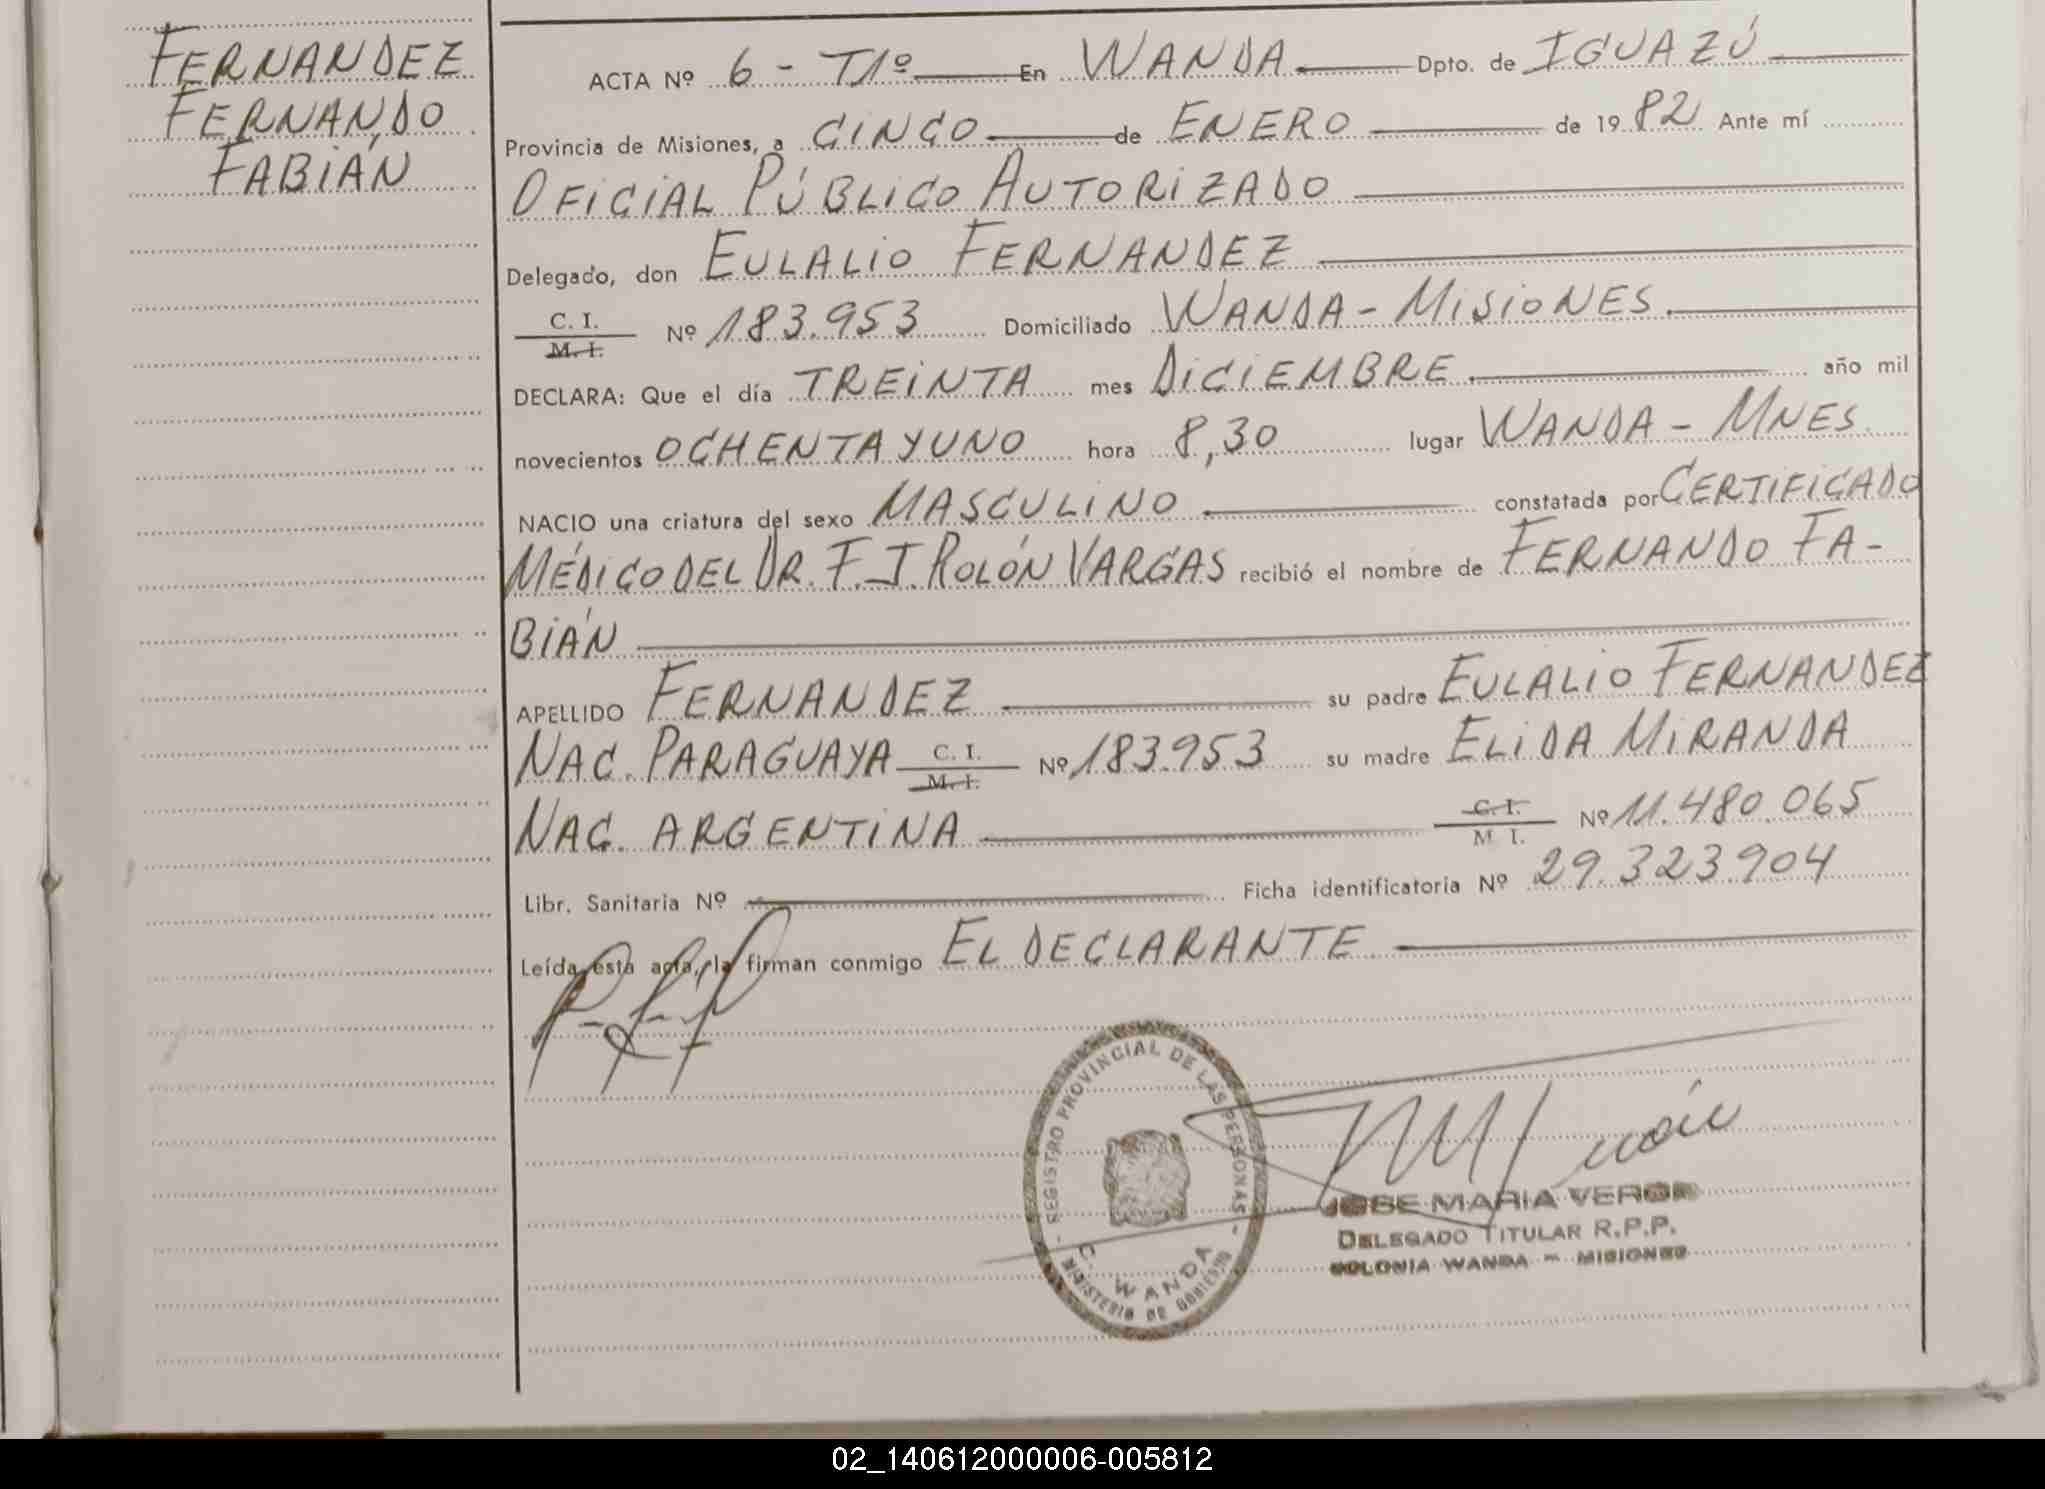 FERNANDEZ
FERNANDO
FABIÁN
ACTA Nº 6 - T1º En WANDA Dpto. de IGUAZÚ
Provincia de Misiones, a CINCO de ENERO de 1982 Ante mí
OFICIAL PÚBLICO AUTORIZADO
Delegado, don EULALIO FERNANDEZ
C. I.
M. I. Nº 183.953 Domiciliado WANDA - MISIONES
DECLARA: Que el día TREINTA mes DICIEMBRE año mil
novecientos OCHENTA Y UNO hora 8,30 lugar WANDA - MNES
NACIO una criatura del sexo MASCULINO constatada por CERTIFICADO
MÉDICO DEL DR. F. J. ROLÓN VARGAS recibió el nombre de FERNANDO FA-
BIÁN
APELLIDO FERNANDEZ su padre EULALIO FERNANDEZ
NAC. PARAGUAYA C. I.
M. I. Nº 183.953 su madre ELIDA MIRANDA
NAC. ARGENTINA C. I.
M. I. Nº 11.480.065
Libr. Sanitaria Nº Ficha identificatoria Nº 29.323.904
Leída esta acta, la firman conmigo EL DECLARANTE
- REGISTRO PROVINCIAL DE LAS PERSONAS -
C. WANDA
MINISTERIO DE GOBIERNO
JOSE MARIA VERON
DELEGADO TITULAR R.P.P.
COLONIA WANDA - MISIONES
02_140612000006-005812